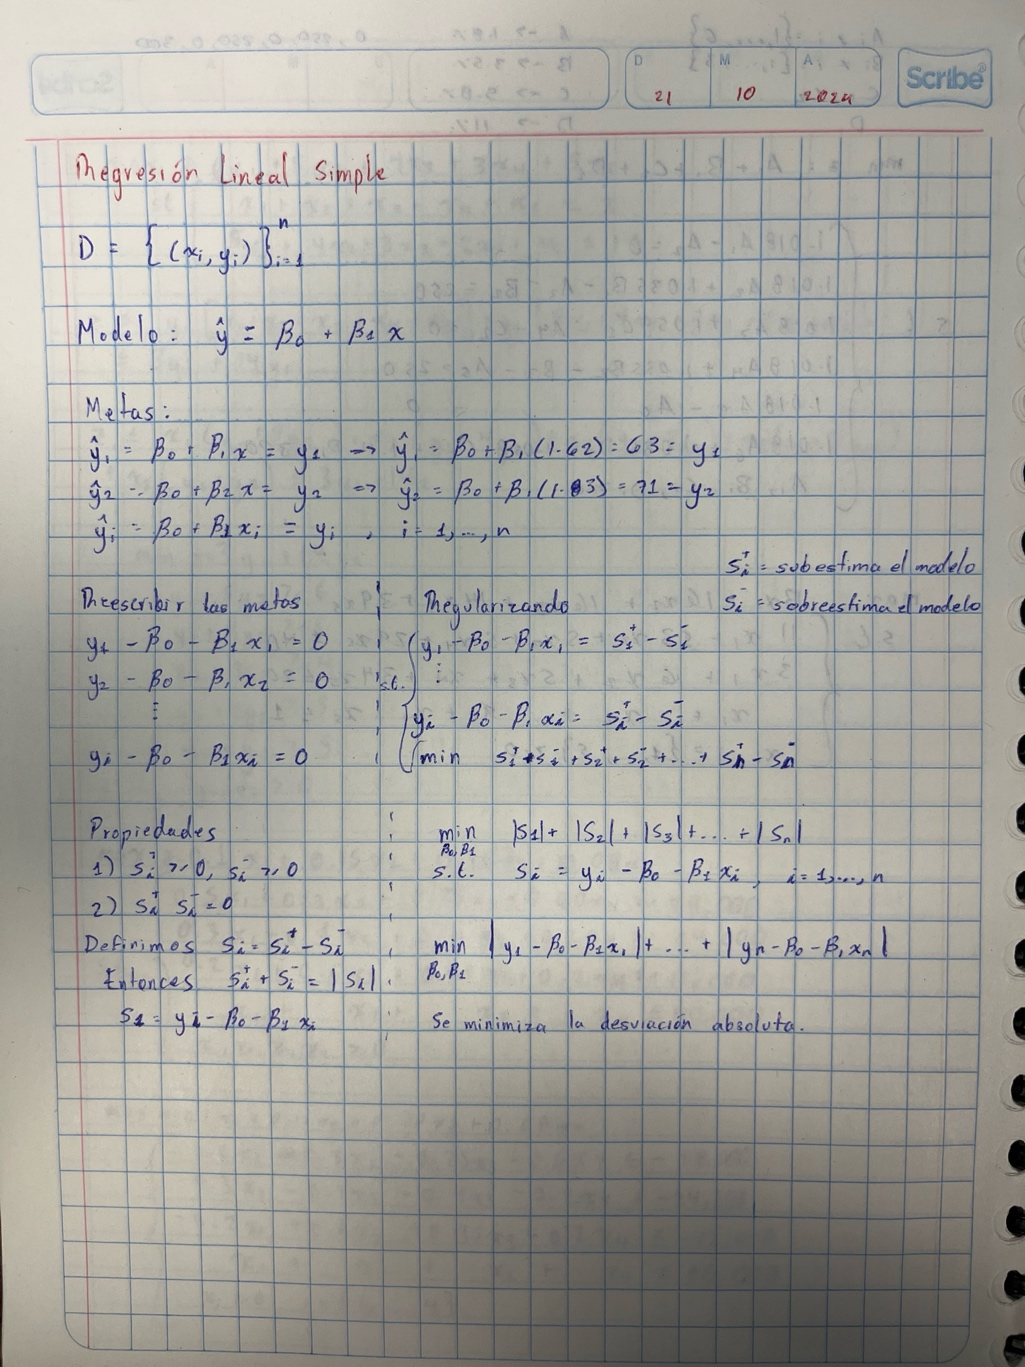 D M A
21 10 2024
Scribe
Regresión Lineal Simple
D = { (xi, yi) }ⁿi=1
Modelo: ŷ = β0 + β1 x
Metas:
ŷ1 = β0 + β1 x = y1 → ŷ1 = β0 + β1 (1.62) = 63 = y1
ŷ2 = β0 + β2 x = y2 => ŷ2 = β0 + β1 (1.83) = 71 = y2
ŷi = β0 + β1 xi = yi , i = 1,...,n
Si⁺ = subestima el modelo
Si⁻ = sobreestima el modelo
Reescribir las metas
y1 - β0 - β1 x1 = 0
y2 - β0 - β1 x2 = 0
⋮
yi - β0 - β1 xi = 0
Regularizando
y1 - β0 - β1 x1 = S1⁺ - S1⁻
s.t. ⋮
yi - β0 - β1 xi = Si⁺ - Si⁻
min S1⁺ + S1⁻ + S2⁺ + S2⁻ + ... + Sn⁺ - Sn⁻
Propiedades
1) Si⁺ ≥ 0, Si⁻ ≥ 0
2) Si⁺ Si⁻ = 0
Definimos Si = Si⁺ - Si⁻
Entonces Si⁺ + Si⁻ = |Si|
S1 = yi - β0 - β1 xi
min |S1| + |S2| + |S3| + ... + |Sn|
β0, β1
s.t. Si = yi - β0 - β1 xi , i = 1,...,n
min |y1 - β0 - β1 x1| + ... + |yn - β0 - β1 xn|
β0, β1
Se minimiza la desviación absoluta.